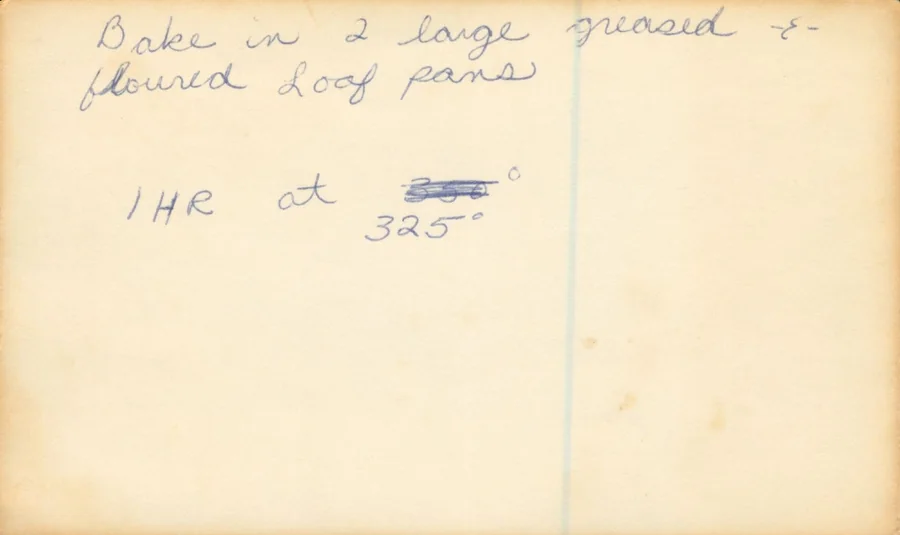 Bake in 2 large greased -&-
floured Loaf pans
1 HR at 350°
325°